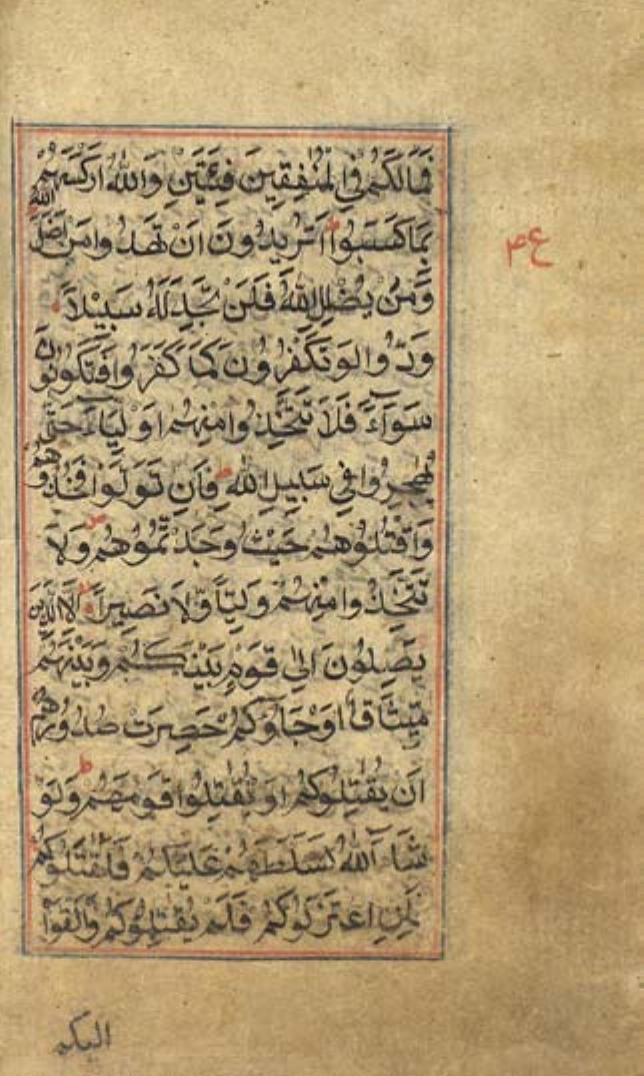 فَمَا لَكُمْ فِي الْمُنٰفِقِينَ فِئَتَيْنِ وَاللّٰهُ اَرْكَسَهُمْ
بِمَا كَسَبُوْا اَتُرِيدُونَ اَنْ تَهْدُوا مَنْ اَضَلَّ اللّٰهُ
وَمَنْ يُضْلِلِ اللّٰهُ فَلَنْ تَجِدَ لَهُ سَبِيْلًا
وَدُّوا لَوْ تَكْفُرُونَ كَمَا كَفَرُوا فَتَكُونُونَ
سَوَآءً فَلَا تَتَّخِذُوا مِنْهُمْ اَوْلِيَآءَ حَتّٰى
يُهَاجِرُوا فِي سَبِيلِ اللّٰهِ فَاِنْ تَوَلَّوْا فَخُذُوهُمْ
وَاقْتُلُوْهُمْ حَيْثُ وَجَدْتُّمُوْهُمْ وَلَا
تَتَّخِذُوا مِنْهُمْ وَلِيًّا وَّلَا نَصِيرًا اِلَّا الَّذِينَ
يَصِلُونَ اِلٰى قَوْمٍ بَيْنَكُمْ وَبَيْنَهُمْ
مِّيثَاقٌ اَوْ جَآؤُكُمْ حَصِرَتْ صُدُورُهُمْ
اَنْ يُقٰتِلُوكُمْ اَوْ يُقٰتِلُوا قَوْمَهُمْ وَلَوْ
شَآءَ اللّٰهُ لَسَلَّطَهُمْ عَلَيْكُمْ فَلَقٰتَلُوكُمْ
فَاِنِ اعْتَزَلُوكُمْ فَلَمْ يُقٰتِلُوكُمْ وَاَلْقَوْا
اليكم
ع م